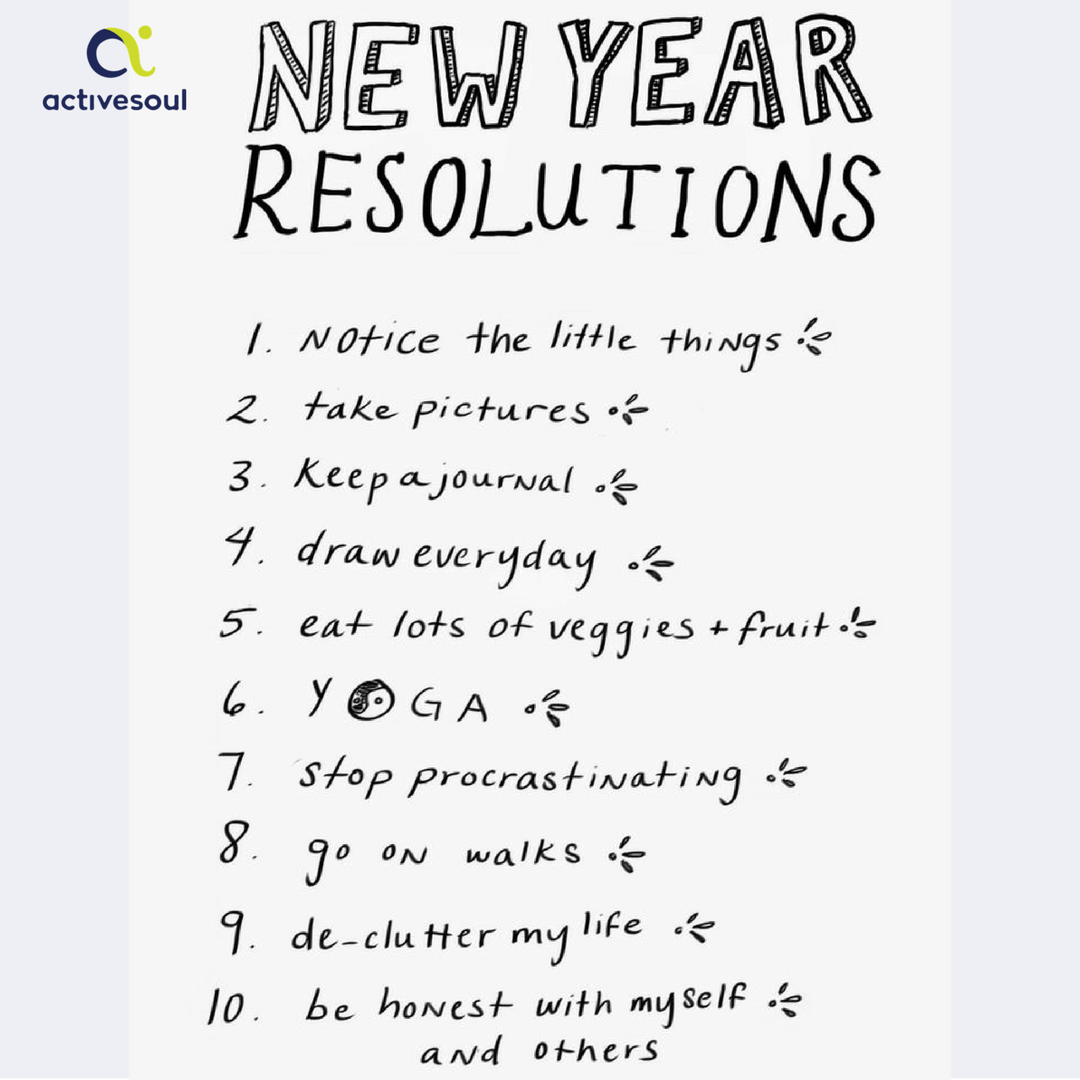 activesoul
NEW YEAR
RESOLUTIONS
1. Notice the little things
2. take pictures
3. Keep a journal
4. draw everyday
5. eat lots of veggies + fruit
6. YOGA
7. stop procrastinating
8. go on walks
9. de-clutter my life
10. be honest with myself
and others